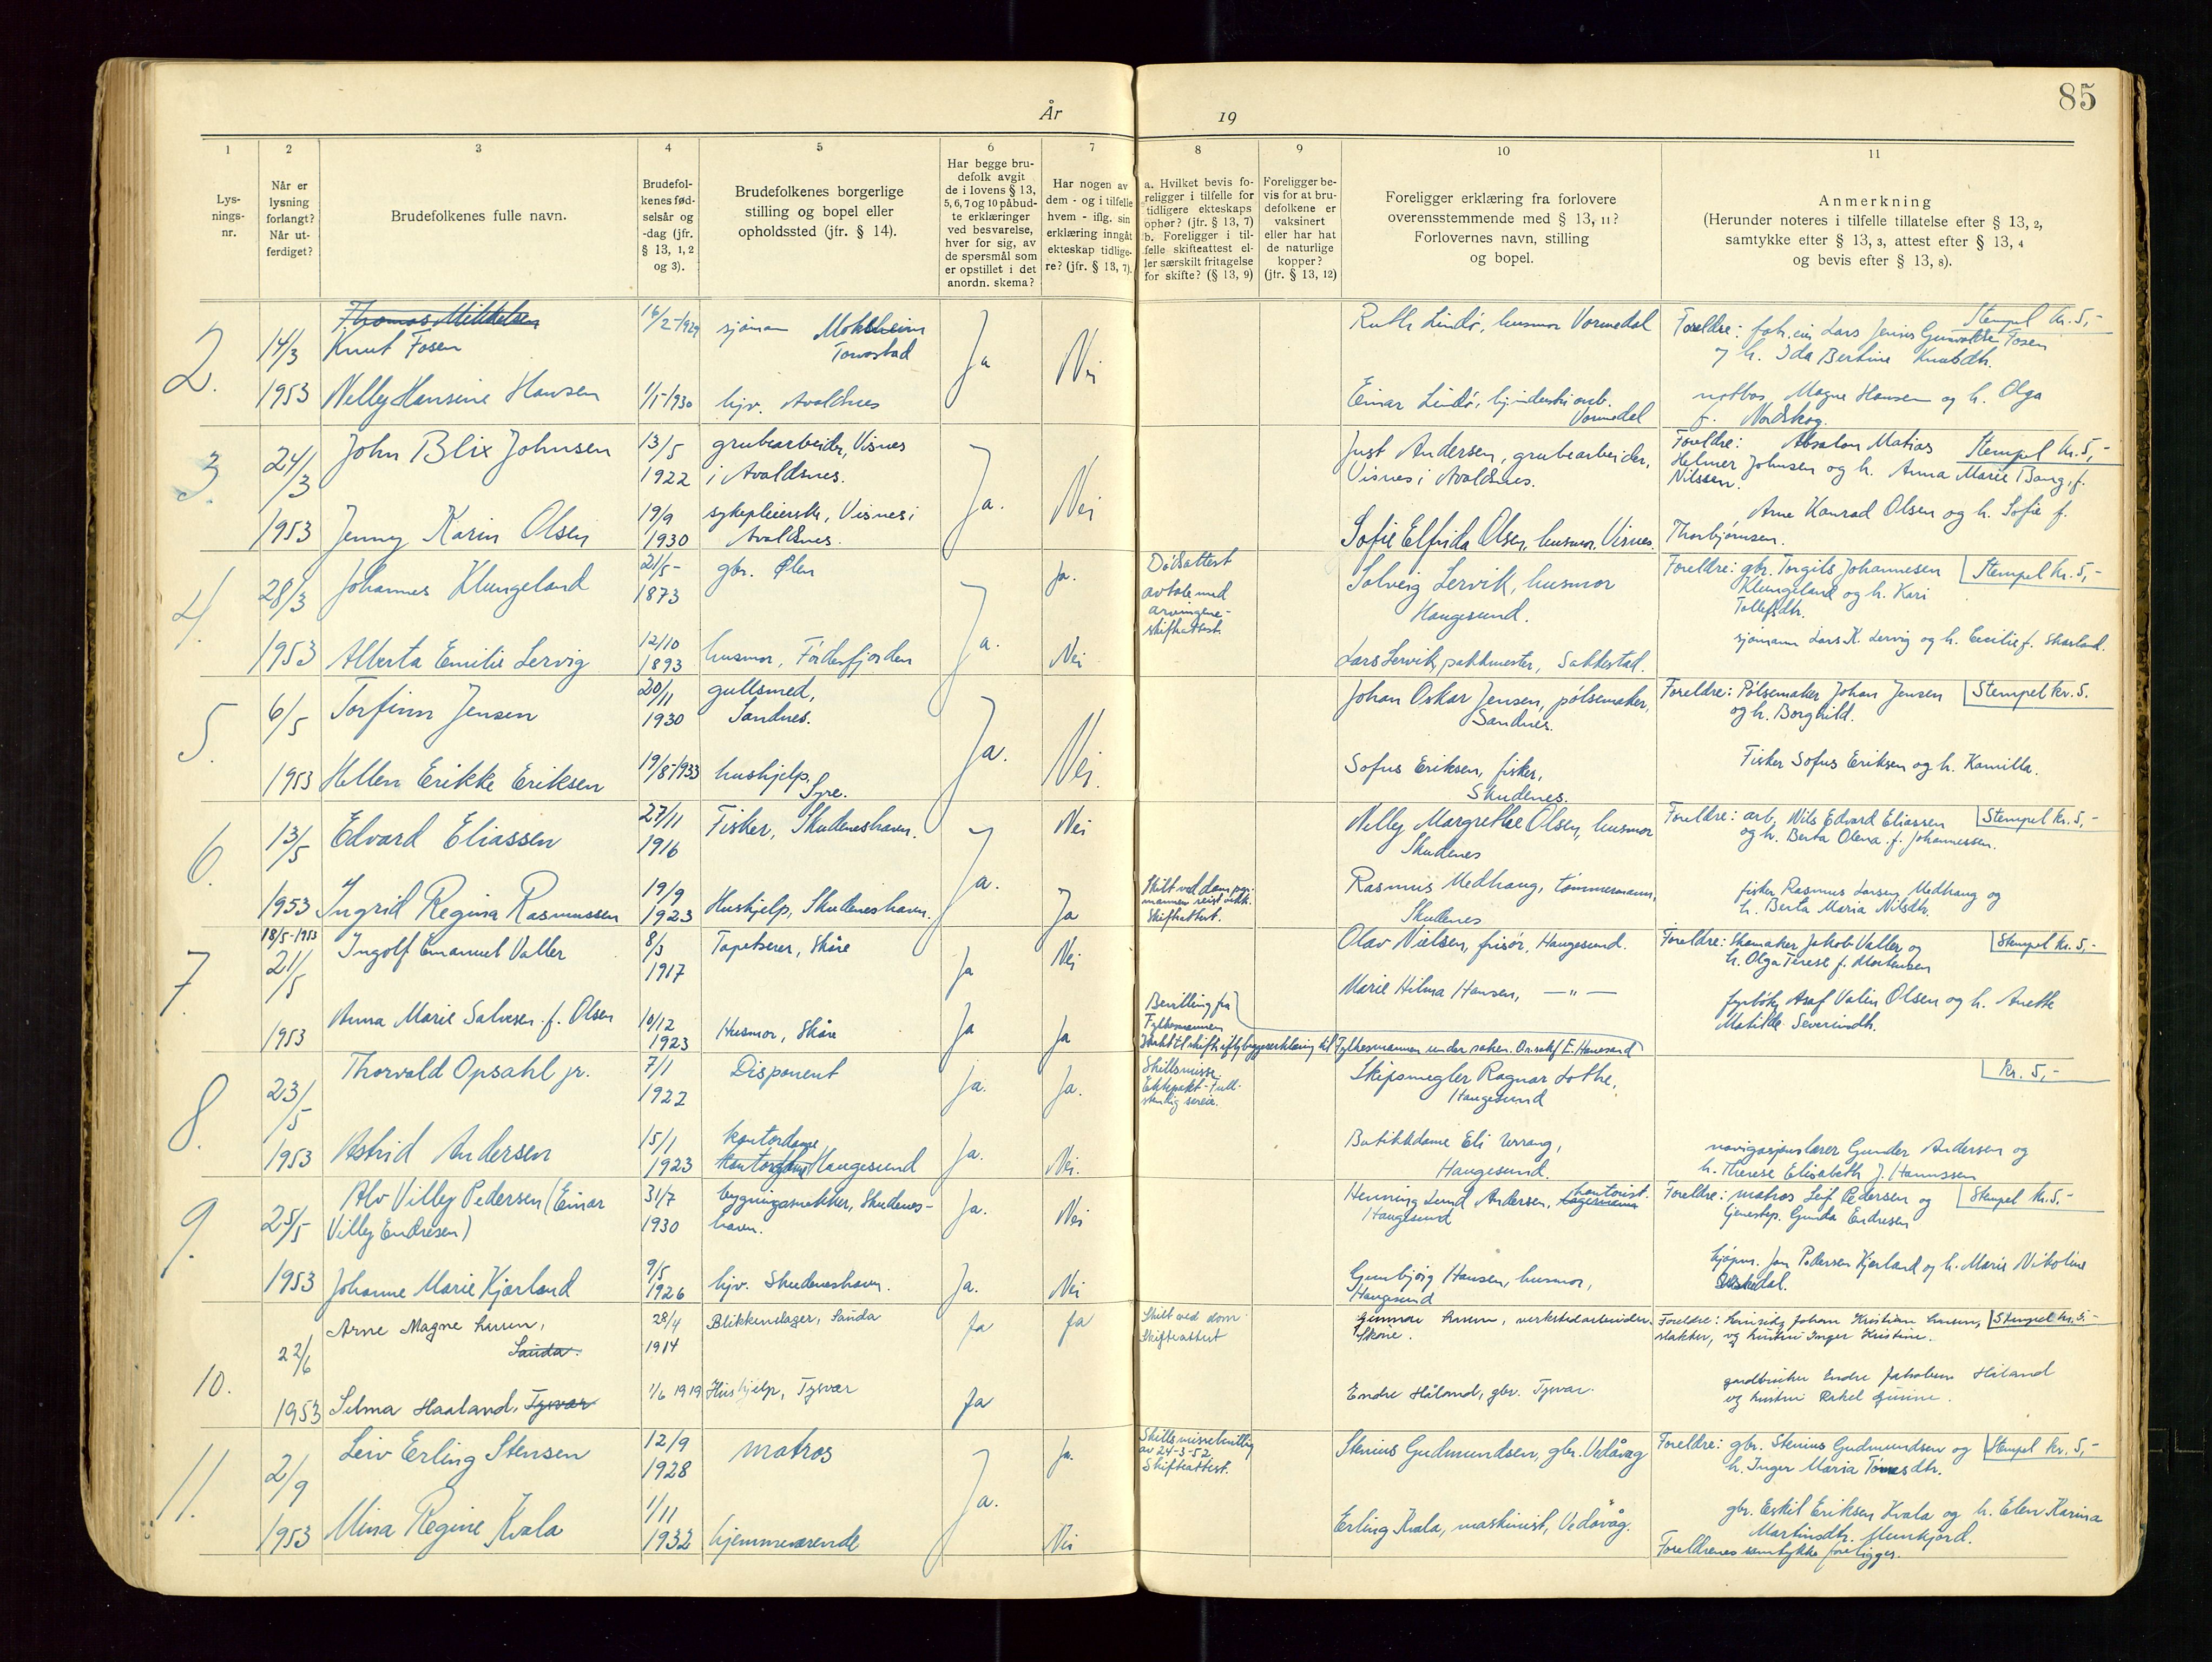 År
19
85
1
2
3
4
5
6
7
8
9
10
11
Lys-
nings-
nr.
Når er
lysning
forlangt?
Når ut-
ferdiget?
Brudefolkenes fulle navn.
Brudefol-
kenes fød-
selsår og
-dag (jfr.
§ 13, 1,2
og 3).
Brudefolkenes borgerlige
stilling og bopel eller
opholdssted (jfr. § 14).
Har begge bru-
defolk avgit
de i lovens § 13,
5, 6, 7 og 10 påbud-
te erklæringer
ved besvarelse,
hver for sig, av
de spørsmål som
er opstillet i det
anordn. skema?
Har nogen av
dem - og i tilfelle
hvem - iflg. sin
erklæring inngåt
ekteskap tidlige-
re? (jfr. § 13, 7).
a. Hvilket bevis fo-
religger i tilfelle for
tidligere ekteskaps
ophør? (jfr. § 13, 7)
b. Foreligger i til-
felle skifteattest el-
ler særskilt fritagelse
for skifte? (§ 13, 9)
Foreligger be-
vis for at bru-
defolkene er
vaksinert
eller har hat
de naturlige
kopper?
(jfr. § 13, 12)
Foreligger erklæring fra forlovere
overensstemmende med § 13, 11?
Forlovernes navn, stilling
og bopel.
Anmerkning
(Herunder noteres i tilfelle tillatelse efter § 13, 2,
samtykke efter § 13, 3, attest efter § 13, 4
og bevis efter § 13, 8).
2.
14/3
1953
Thomas Mikkelsen
Knut Fosen
16/2-1929
sjømann Moksheim
Torvastad
Ja
Nei
Ruth Lindø, husmor Vormedal
Stempel Kr. 5,-
Foreldre: Lars Jenius Gunvaldsen Fosen
og h. Ida Bertine Knutsdtr.
Nelly Hansine Hansen
1/5-1930
hjv. Avaldsnes
Einar Lindø, Vormedal
notbas Magne Hansen og h. Olga
f. Nordskog.
3.
24/3
1953
John Blix Johnsen
13/5
1922
grubearbeider, Visnes
i Avaldsnes.
Ja.
Nei
Just Andersen, grubearbeider,
Visnes i Avaldsnes.
Foreldre: Absalon Matias Stempel Kr. 5,-
Helmer Johnsen og h. Anna Marie Bang, f.
Nilssen.
Jenny Karin Olsen
19/9
1930
sykepleierske, Visnes i
Avaldsnes.
Sofie Elfrida Olsen, husmor, Visnes.
Arne Konrad Olsen og h. Sofie f.
Thorbjørnsen.
4.
28/3
1953
Johannes Klungeland
21/5-
1873
gbr. Ølen
Ja.
Ja.
Dødsattest
avtale med
arvingene-
skifteattest
Solveig Lervik, husmor
Haugesund.
Foreldre: gbr. Torgils Johannesen Stempel Kr. 5,-
Klungeland og h. Kari
Tollefsdtr.
Alberta Emilie Lervig
12/10
1893
husmor, Førdesfjorden
Nei
Lars Lervik, pakkmester, Sakkestad.
sjømann Lars K. Lervig og h. Cecilie f. Skarland.
5.
6/5
1953
Torfinn Jensen
20/11
1930
gullsmed,
Sandnes.
Ja.
Nei.
Johan Oskar Jensen, pølsemaker,
Sandnes.
Foreldre: Pølsemaker Johan Jensen Stempel kr. 5.
og h. Borghild.
Hellen Erikke Eriksen
19/8-1933
hushjelp,
Syre.
Sofus Eriksen, fisker,
Skudenes.
Fisker Sofus Eriksen og h. Kamilla.
6.
13/5
1953
Edvard Eliassen
27/11
1916
Fisker, Skudeneshavn.
Ja.
Nei
Nelly Margrethe Olsen, husmor
Skudenes
Foreldre: arb. Nils Edvard Eliassen Stempel Kr. 5,-
og h. Berta Olena f. Johannessen.
Ingrid Regina Rasmussen
19/9
1923
Hushjelp, Skudeneshavn.
Ja
Skilt ved dom
mannen reist
Skifteattest.
Rasmus Medhaug, tømmermann,
Skudenes
fisker Rasmus Larsen Medhaug og
h. Berta Maria Nilsdtr.
7.
18/5-1953
21/5
1953
Ingolf Emanuel Valler
8/3
1917
Tapetserer, Skåre
Ja
Nei
Olav Nielsen, frisør, Haugesund.
Foreldre: Skomaker Jakob Valler og Stempel Kr. 5,-
h. Olga Terese f. Mortensen
Anna Marie Salvesen f. Olsen
10/12
1923
Husmor, Skåre
Ja
Ja
Bevilling fra
Fylkesmannen
Marie Hilma Hansen, — " —
fyrbøter Asaf Valin Olsen og h. Anette
Matilde Severindtr.
Fylkesmannen under saken. E. Haavesund
8.
23/5
1953
Thorvald Opsahl jr.
7/1
1922
Disponent
ja.
Ja.
Skilsmisse
Ektepakt - Full-
stendig særeie.
Skipsmegler Ragnar Lothe,
Haugesund
Kr. 5,-
Astrid Andersen
15/1
1923
kontordame
Haugesund
Ja.
Nei.
Butikkdame Eli Verrang,
Haugesund.
navigasjonslærer Gunder Andersen og
h. Therese Elisabeth f. Hannssen
9.
25/5
1953
Alv Villy Pedersen (Einar
Villy Endresen)
31/7
1930
bygningssnekker, Skudenes-
havn.
Ja.
Nei
Henning Lund Andersen, kontorist. lagermann
Haugesund
Foreldre: matros Leif Pedersen og Stempel kr. 5,-
tjenestep. Gunda Endresen
Johanne Marie Kjærland
9/5
1926
hjv. Skudeneshavn.
Ja.
Nei
Gunbjørg Hansen, husmor,
Haugesund
kjøpm. Jan Pedersen Kjærland og h. Marie Nikoline
10.
22/6
1953
Arne Magne Larsen,
Sauda.
28/4
1914
Blikkenslager, Sauda
Ja
Ja
Skilt ved dom
Skifteattest
Gunnar Larsen, verkstedarbeider
Skåre.
Foreldre: Johan Kristian Larsen, Stempel Kr. 5,-
slakter, og hustru Inger Kristine.
Selma Haaland, Tysvær
1/6 1919
Hushjelp, Tysvær
Ja
Endre Håland, gbr. Tysvær.
gardbruker Endre Jakobsen Håland
og hustru Rakel Gurine.
11.
2/9
1953
Leiv Erling Stensen
12/9
1928
matros
Ja.
Ja.
Skilsmissebevilling
av 24-3-52
Skifteattest.
Stenius Gudmundsen, gbr. Vedavåg
Foreldre: gbr. Stenius Gudmundsen og Stempel Kr. 5,-
h. Inger Maria Tønnesdtr.
Mina Regine Kvala
1/11
1932
hjemmeværende
Nei
Erling Kvala, maskinist, Vedavåg.
gbr. Eskil Eriksen Kvala og h. Elen Karina
Martinsdtr. Munkjord.
Foreldrenes samtykke foreligger.